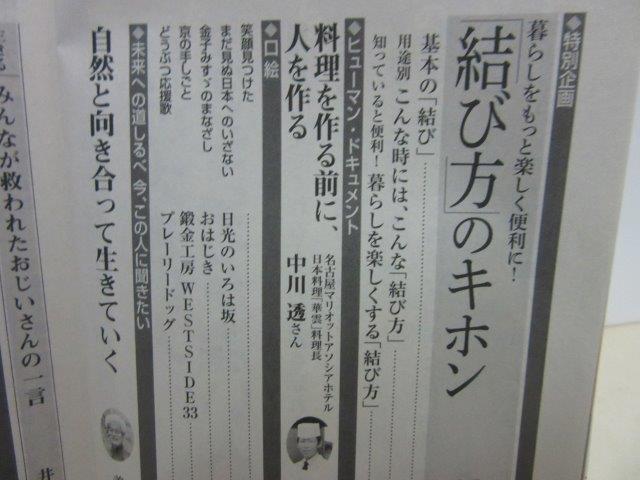 ◆特別企画
暮らしをもっと楽しく便利に!
「結び方」のキホン
基本の「結び」
用途別 こんな時には、こんな「結び方」
知っていると便利! 暮らしを楽しくする「結び方」
◆ヒューマン・ドキュメント
料理を作る前に、
人を作る
名古屋マリオットアソシアホテル
日本料理「華雲」料理長
中川 透さん
◆口絵
笑顔見つけた
まだ見ぬ日本へのいざない 日光のいろは坂
金子みすゞのまなざし おはじき
京の手しごと 鍛金工房 WESTSIDE33
どうぶつ応援歌 プレーリードッグ
◆未来への道しるべ 今、この人に聞きたい
自然と向き合って生きていく
みんなが救われたおじいさんの一言
井